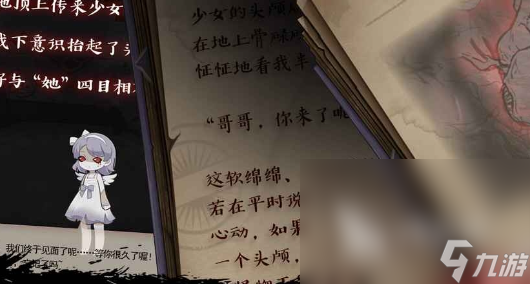 地顶上传来少女
我下意识抬起了头
好与“她”四目相
我们终于见面了呢……等你很久了喔！
少女的头颅
在地上骨
怔怔地看我半
“哥哥，你来了呢
这软绵绵、
若在平时说
心动，如果
一个头颅，
九游